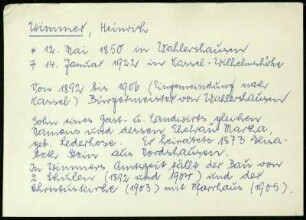 Wimmer, Heinrich
* 12. Mai 1850 in Wahlershausen
† 14. Januar 1922 in Kassel-Wilhelmshöhe
Von 1892 bis 1906 (Eingemeindung nach
Kassel) Bürgermeister von Wahlershausen
Sohn eines Gast- u. Landwirts gleichen
Namens und dessen Ehefrau Martha,
geb. Lederhose. Er heiratete 1873
aus Nordshausen.
In Wimmers Amtszeit fällt der Bau von
2 Schulen (1892 und 1904) und der
Christuskirche (1903) mit Pfarrhaus (1905).